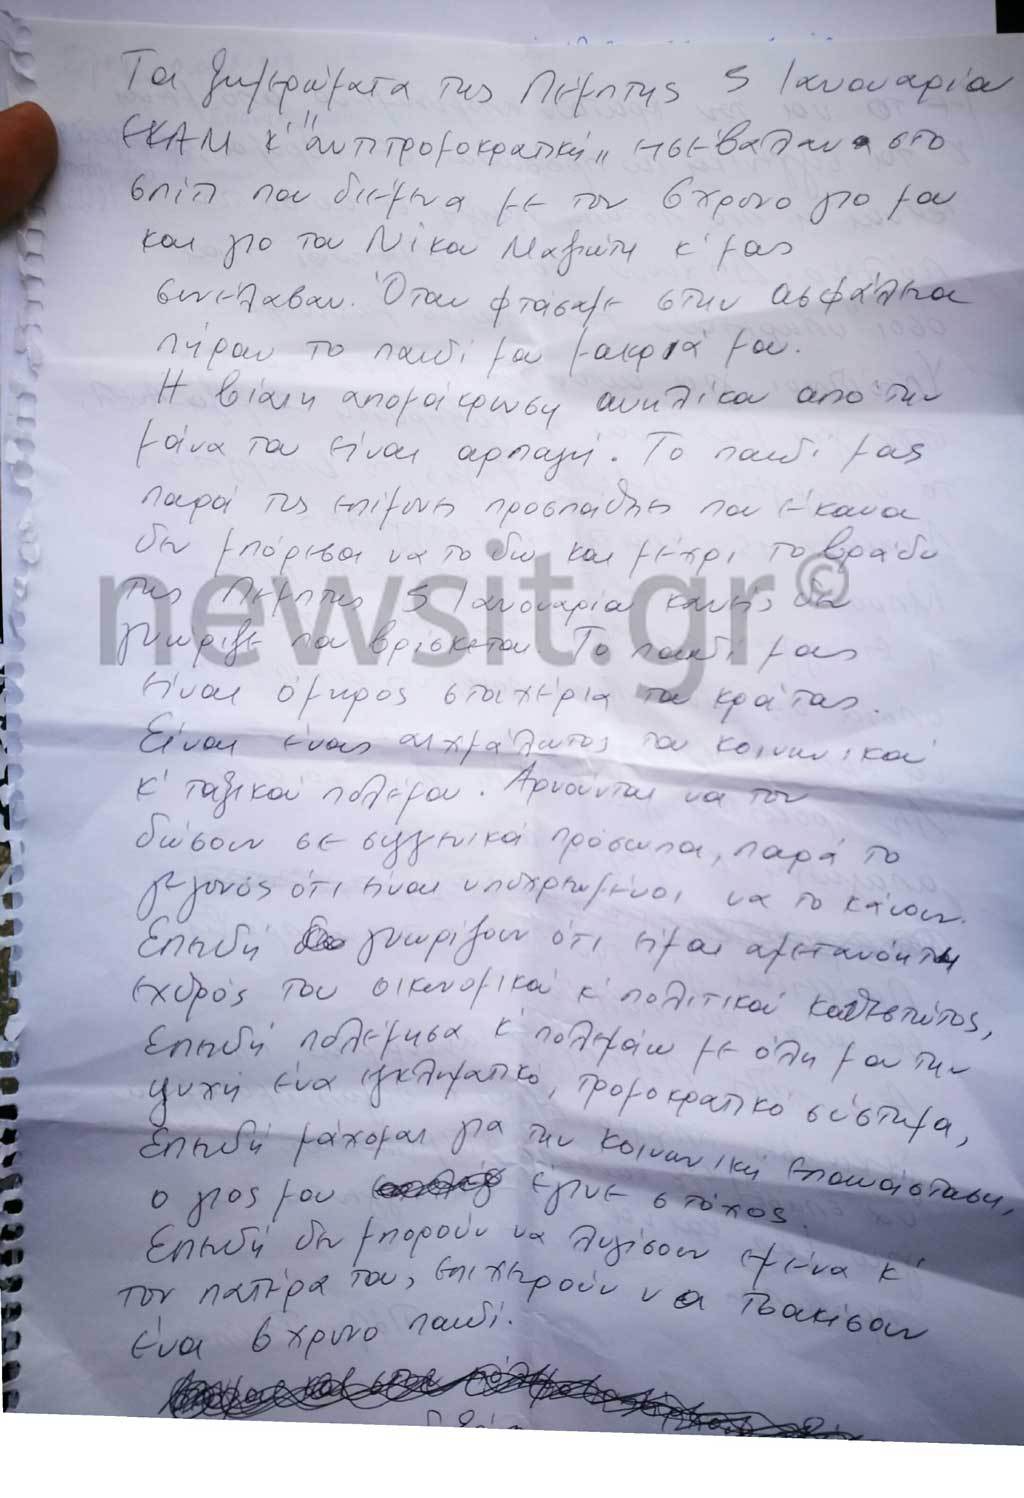 Τα ξημερώματα της Πέμπτης 5 Ιανουαρίου
ΕΚΑΜ κ' "αντιτρομοκρατική" εισέβαλαν στο
σπίτι που διέμενα με τον 6χρονο γιο μου
και γιο του Νίκου Μαζιώτη κ' μας
συνέλαβαν. Όταν φτάσαμε στην ασφάλεια
πήραν το παιδί μου μακριά μου.
Η βίαιη απομάκρυνση ανηλίκου από την
μάνα του είναι αρπαγή. Το παιδί μας
παρά τις επίμονες προσπάθειες που έκανα
δεν μπόρεσα να το δω και μέχρι το βράδυ
της Πέμπτης 5 Ιανουαρίου κανείς δεν
γνώριζε που βρίσκεται. Το παιδί μας
είναι όμηρος στα χέρια του κράτους.
Είναι ένας αιχμάλωτος του κοινωνικού
κ' ταξικού πολέμου. Αρνούνται να τον
δώσουν σε συγγενικά πρόσωπα, παρά το
γεγονός ότι είναι υποχρεωμένοι να το κάνουν.
Επειδή γνωρίζουν ότι είμαι αμετανόητη
εχθρός του οικονομικού κ' πολιτικού καθεστώτος,
Επειδή πολέμησα κ' πολεμάω με όλη μου την
ψυχή ένα εγκληματικό, τρομοκρατικό σύστημα,
Επειδή μάχομαι για την κοινωνική επανάσταση,
ο γιος μου έγινε στόχος.
Επειδή δεν μπορούν να λυγίσουν εμένα κ'
τον πατέρα του, επιχειρούν να τσακίσουν
ένα 6χρονο παιδί.
newsit.gr©